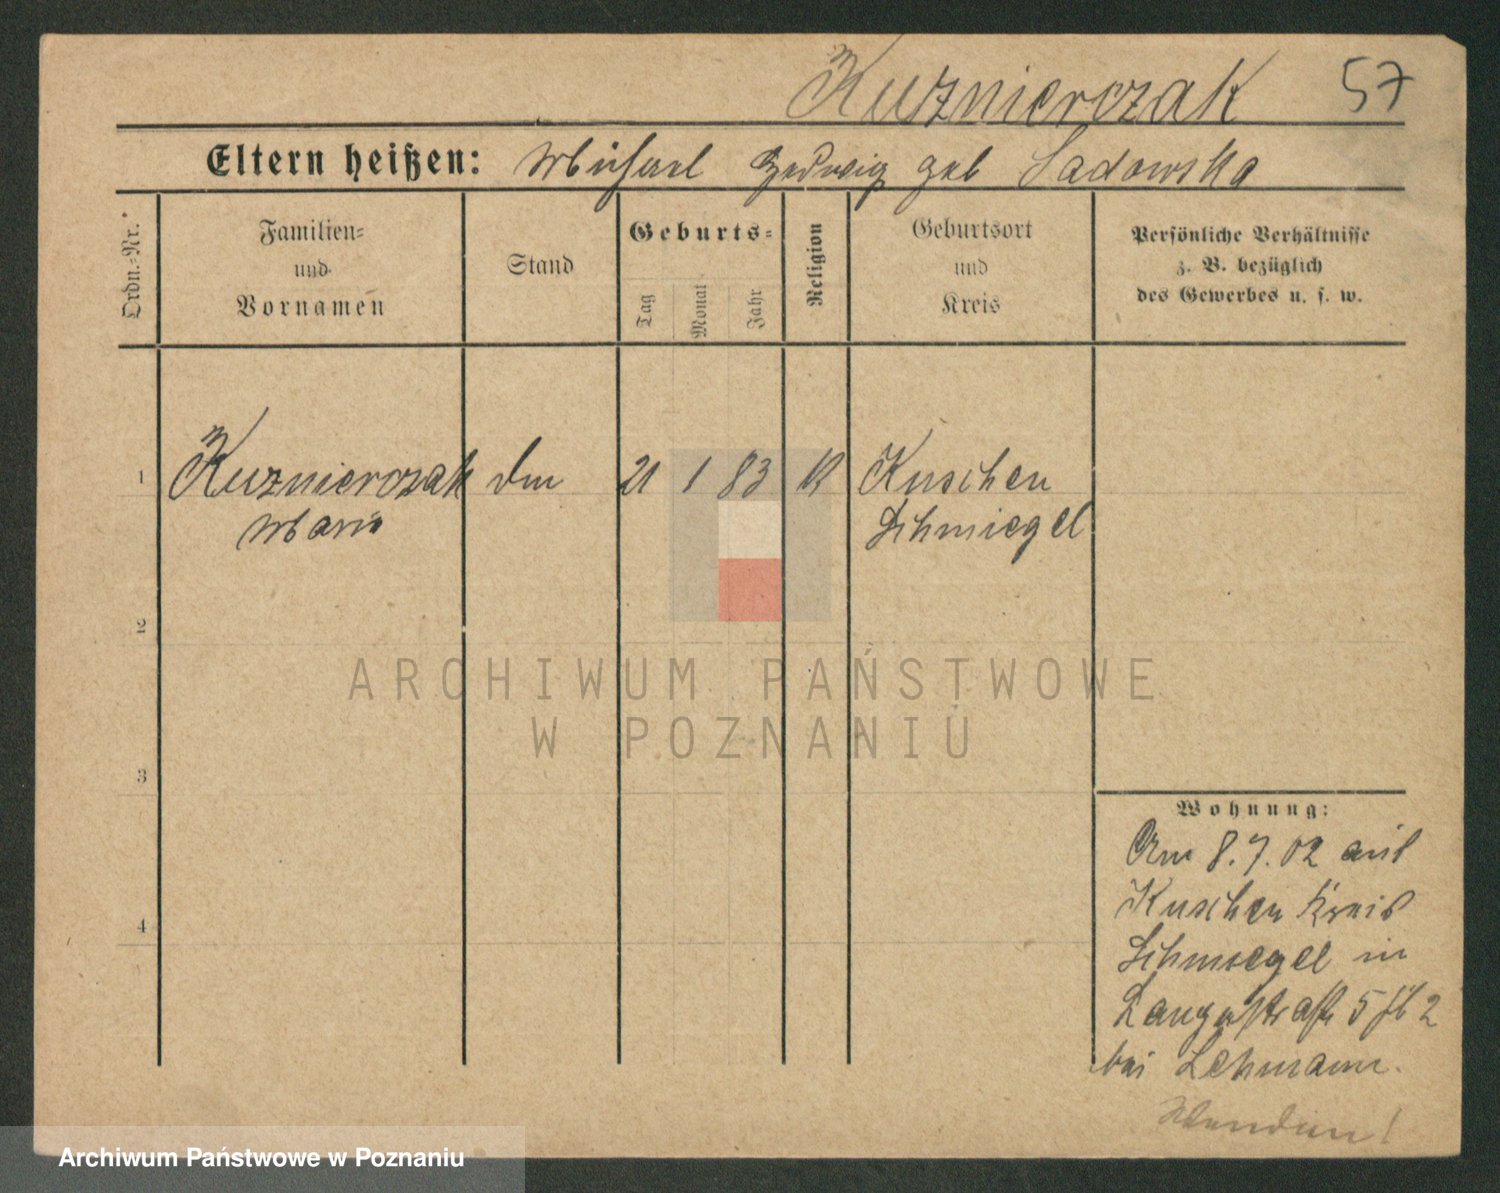 Kuznierczak 57
Eltern heißen: Michael Hedwig geb Sadowska
Ordn.-Nr.
Familien-
und
Vornamen
Stand
Geburts-
Tag
Monat
Jahr
Religion
Geburtsort
und
Kreis
Persönliche Verhältnisse
z. B. bezüglich
des Gewerbes u. s. w.
1 Kuznierczak 21 1 83 K Kuschen
Marie Schmiegel
2
ARCHIWUM PAŃSTWOWE
W POZNANIU
3
Wohnung:
Am 8.7.02 aus
Kuschen Kreis
4
Schmiegel in
Langestraße 5 2
bei Lehmann.
Archiwum Państwowe w Poznaniu